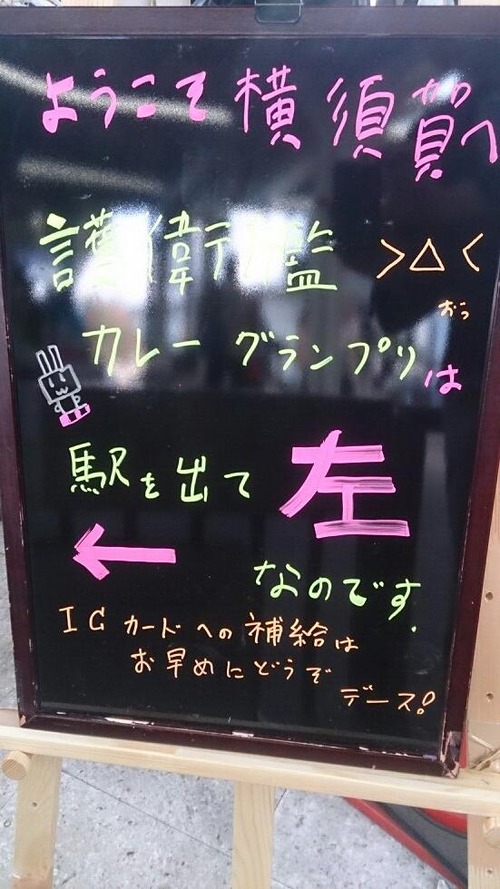 ようこそ横須賀へ
護衛デ艦 >△<
おっ
カレーグランプリは
駅を出て 左
←
なのです.
ICカードへの補給は
お早めにどうぞ
デース!